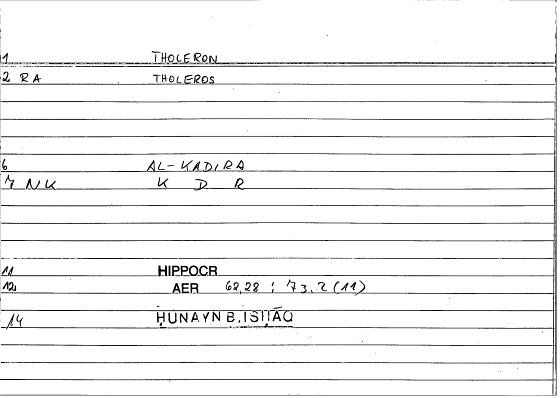 1 THOLERON
2 RA THOLEROS
6 AL-KADIRA
7 NK K D R
11 HIPPOCR
12 AER 68,28 ; 73.2 (11)
14 ḤUNAYN B. ISḤĀQ